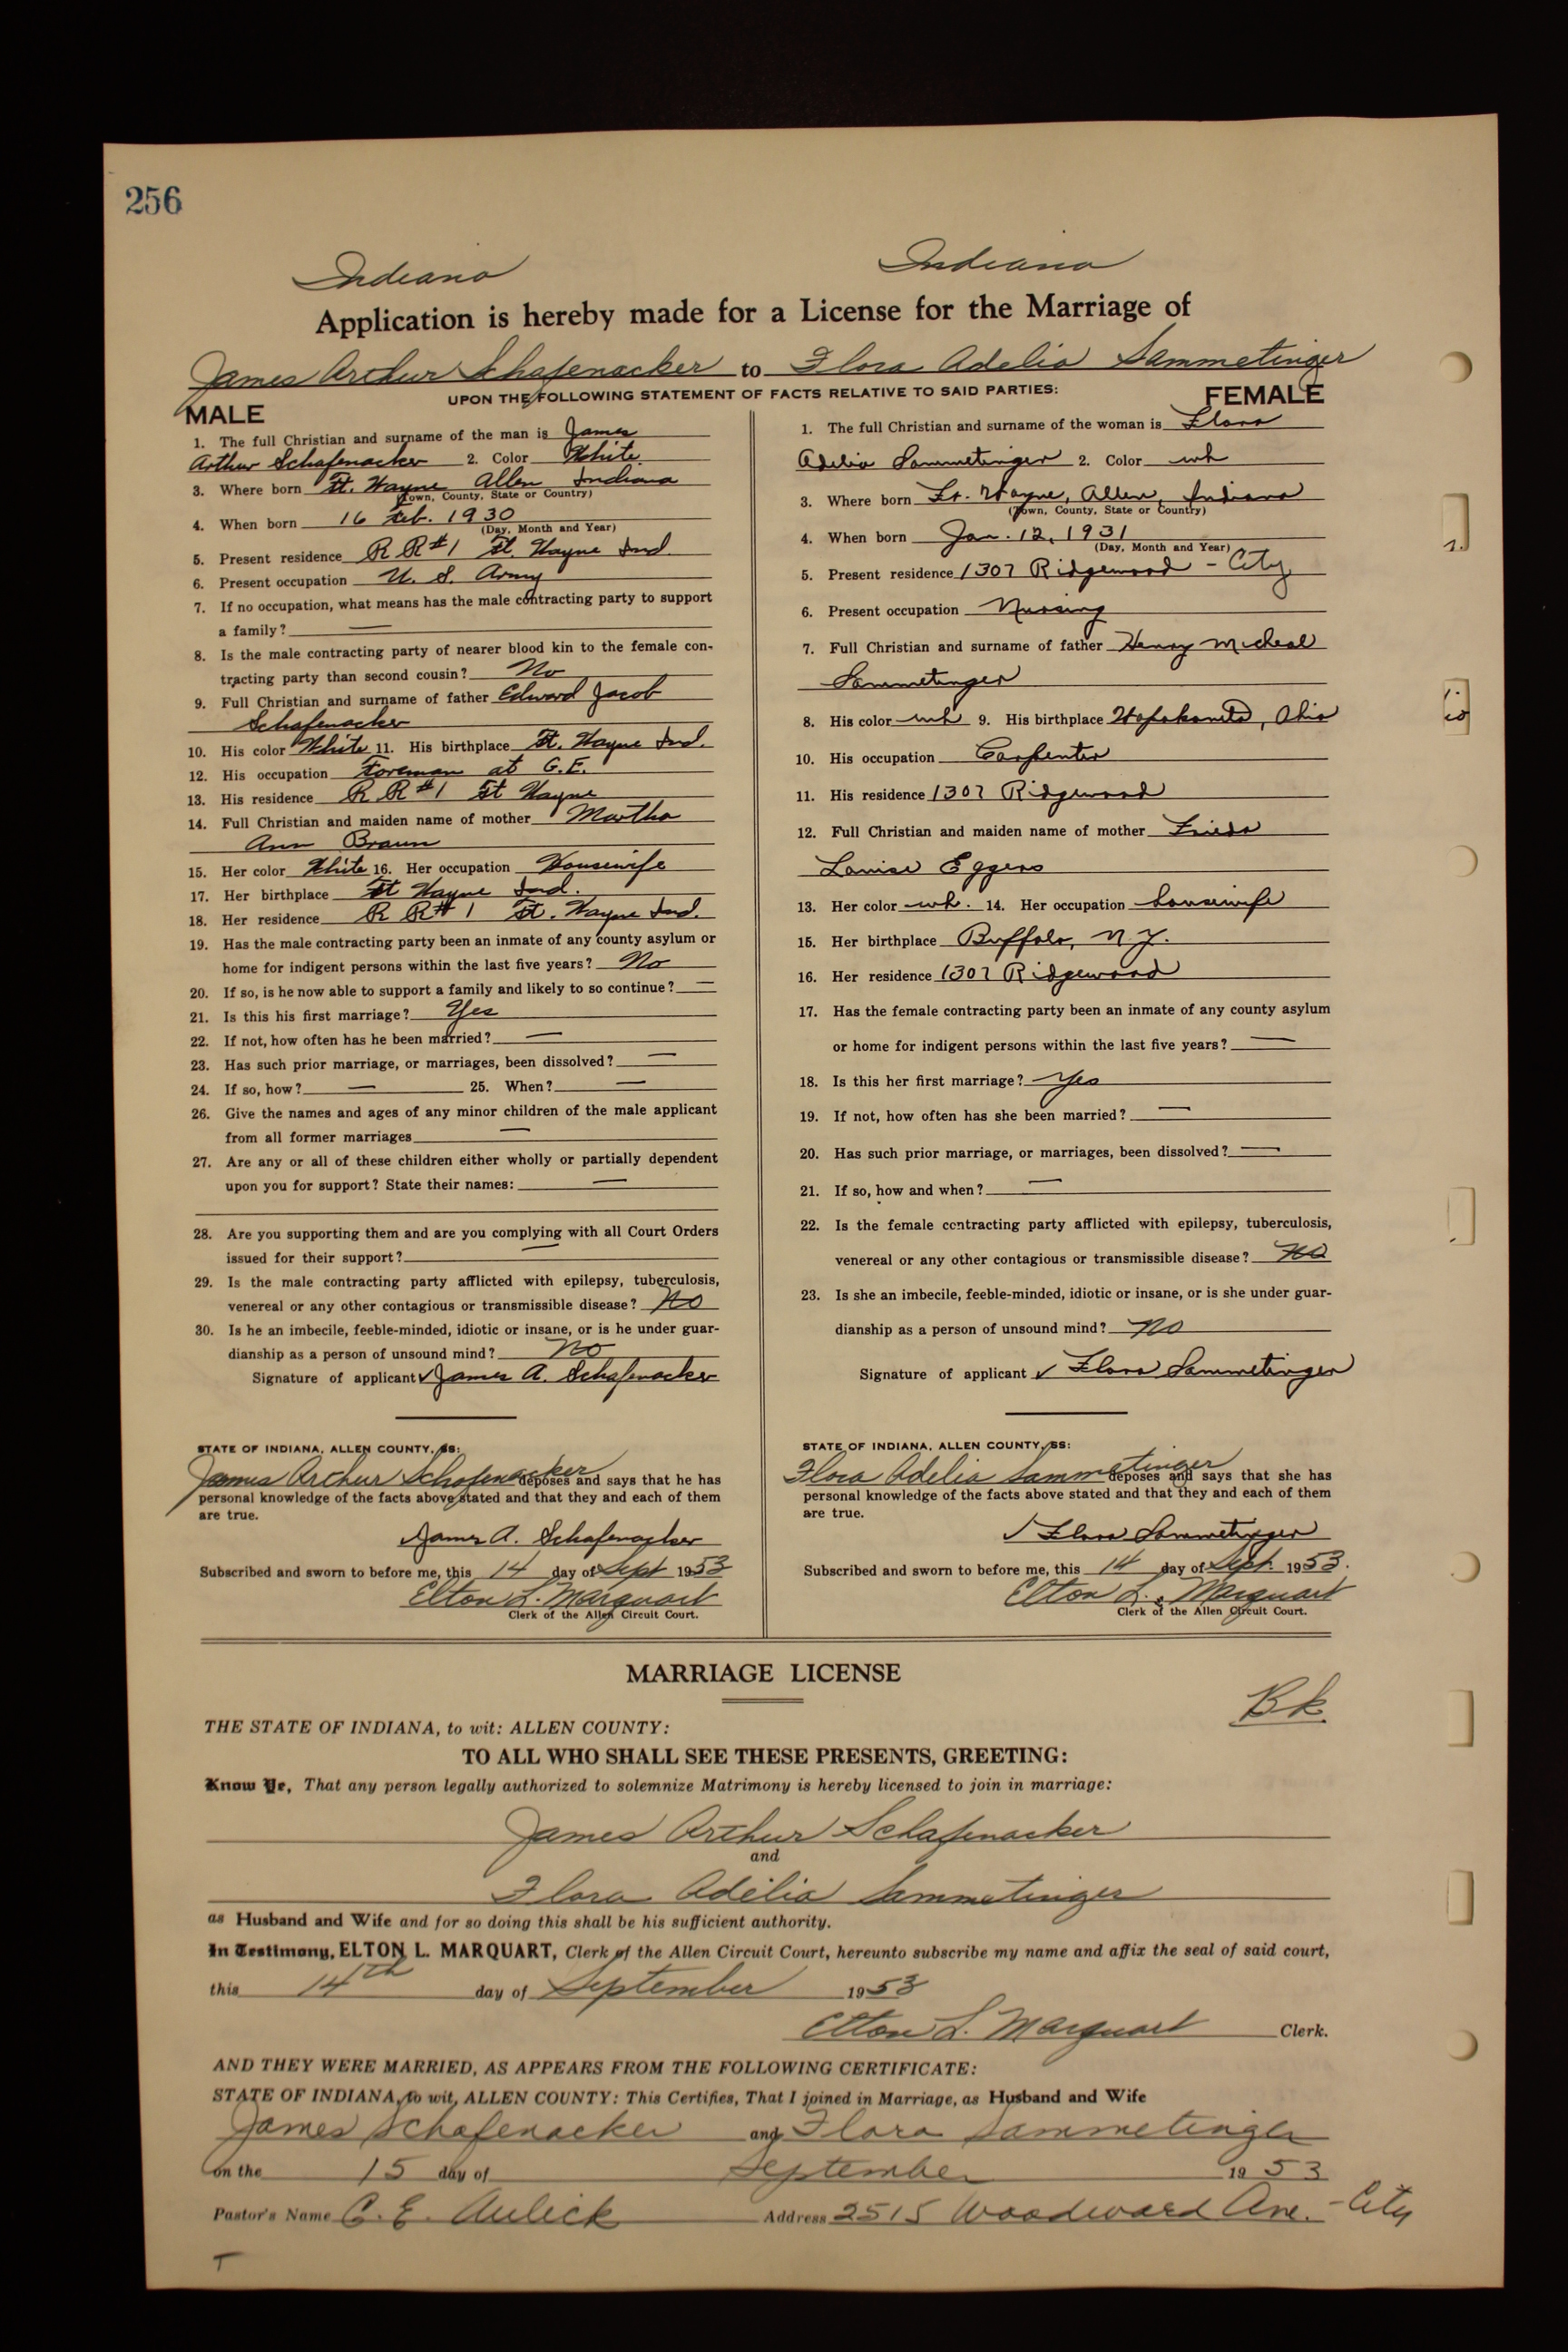 256
Indiana
Indiana
Application is hereby made for a License for the Marriage of
James Arthur Schafenacker to Flora Adelia Sammetinger
UPON THE FOLLOWING STATEMENT OF FACTS RELATIVE TO SAID PARTIES:
MALE
1. The full Christian and surname of the man is James
Arthur Schafenacker 2. Color White
3. Where born Ft. Wayne Allen Indiana
(Town, County, State or Country)
4. When born 16 Feb. 1930
(Day, Month and Year)
5. Present residence R R #1 Ft. Wayne Ind.
6. Present occupation U. S. Army
7. If no occupation, what means has the male contracting party to support
a family? —
8. Is the male contracting party of nearer blood kin to the female con-
tracting party than second cousin? No
9. Full Christian and surname of father Edward Jacob
Schafenacker
10. His color White 11. His birthplace Ft. Wayne Ind.
12. His occupation Foreman at G.E.
13. His residence R R #1 Ft Wayne
14. Full Christian and maiden name of mother Martha
Ann Braun
15. Her color White 16. Her occupation Housewife
17. Her birthplace Ft Wayne Ind.
18. Her residence R R # 1 Ft. Wayne Ind.
19. Has the male contracting party been an inmate of any county asylum or
home for indigent persons within the last five years? No
20. If so, is he now able to support a family and likely to so continue? —
21. Is this his first marriage? Yes
22. If not, how often has he been married? —
23. Has such prior marriage, or marriages, been dissolved? —
24. If so, how? — 25. When? —
26. Give the names and ages of any minor children of the male applicant
from all former marriages —
27. Are any or all of these children either wholly or partially dependent
upon you for support? State their names: —
28. Are you supporting them and are you complying with all Court Orders
issued for their support? —
29. Is the male contracting party afflicted with epilepsy, tuberculosis,
venereal or any other contagious or transmissible disease? No
30. Is he an imbecile, feeble-minded, idiotic or insane, or is he under guar-
dianship as a person of unsound mind? No
Signature of applicant ✓ James A. Schafenacker
STATE OF INDIANA, ALLEN COUNTY, SS:
James Arthur Schafenacker deposes and says that he has
personal knowledge of the facts above stated and that they and each of them
are true.
James A. Schafenacker
Subscribed and sworn to before me, this 14 day of Sept 1953
Elton L. Marquart
Clerk of the Allen Circuit Court.
FEMALE
1. The full Christian and surname of the woman is Flora
Adelia Sammetinger 2. Color wh
3. Where born Ft. Wayne, Allen, Indiana
(Town, County, State or Country)
4. When born Jan. 12, 1931
(Day, Month and Year)
5. Present residence 1307 Ridgewood - City
6. Present occupation Nursing
7. Full Christian and surname of father Henry Micheal
Sammetinger
8. His color wh 9. His birthplace Wapakoneta, Ohio
10. His occupation Carpenter
11. His residence 1307 Ridgewood
12. Full Christian and maiden name of mother Frieda
Louise Eggers
13. Her color wh. 14. Her occupation housewife
15. Her birthplace Buffalo, N.Y.
16. Her residence 1307 Ridgewood
17. Has the female contracting party been an inmate of any county asylum
or home for indigent persons within the last five years? —
18. Is this her first marriage? Yes
19. If not, how often has she been married? —
20. Has such prior marriage, or marriages, been dissolved? —
21. If so, how and when? —
22. Is the female contracting party afflicted with epilepsy, tuberculosis,
venereal or any other contagious or transmissible disease? No
23. Is she an imbecile, feeble-minded, idiotic or insane, or is she under guar-
dianship as a person of unsound mind? no
Signature of applicant ✓ Flora Sammetinger
STATE OF INDIANA, ALLEN COUNTY, SS:
Flora Adelia Sammetinger deposes and says that she has
personal knowledge of the facts above stated and that they and each of them
are true.
✓ Flora Sammetinger
Subscribed and sworn to before me, this 14 day of Sept. 1953.
Elton L. Marquart
Clerk of the Allen Circuit Court.
MARRIAGE LICENSE
Bk.
THE STATE OF INDIANA, to wit: ALLEN COUNTY:
TO ALL WHO SHALL SEE THESE PRESENTS, GREETING:
Know Ye, That any person legally authorized to solemnize Matrimony is hereby licensed to join in marriage:
James Arthur Schafenacker
and
Flora Adelia Sammetinger
as Husband and Wife and for so doing this shall be his sufficient authority.
In Testimony, ELTON L. MARQUART, Clerk of the Allen Circuit Court, hereunto subscribe my name and affix the seal of said court,
this 14th day of September 1953
Elton L. Marquart Clerk.
AND THEY WERE MARRIED, AS APPEARS FROM THE FOLLOWING CERTIFICATE:
STATE OF INDIANA, to wit, ALLEN COUNTY: This Certifies, That I joined in Marriage, as Husband and Wife
James Schafenacker and Flora Sammetinger
on the 15 day of September 1953
Pastor's Name C. E. Aulick Address 2515 Woodward Ave. - City
T